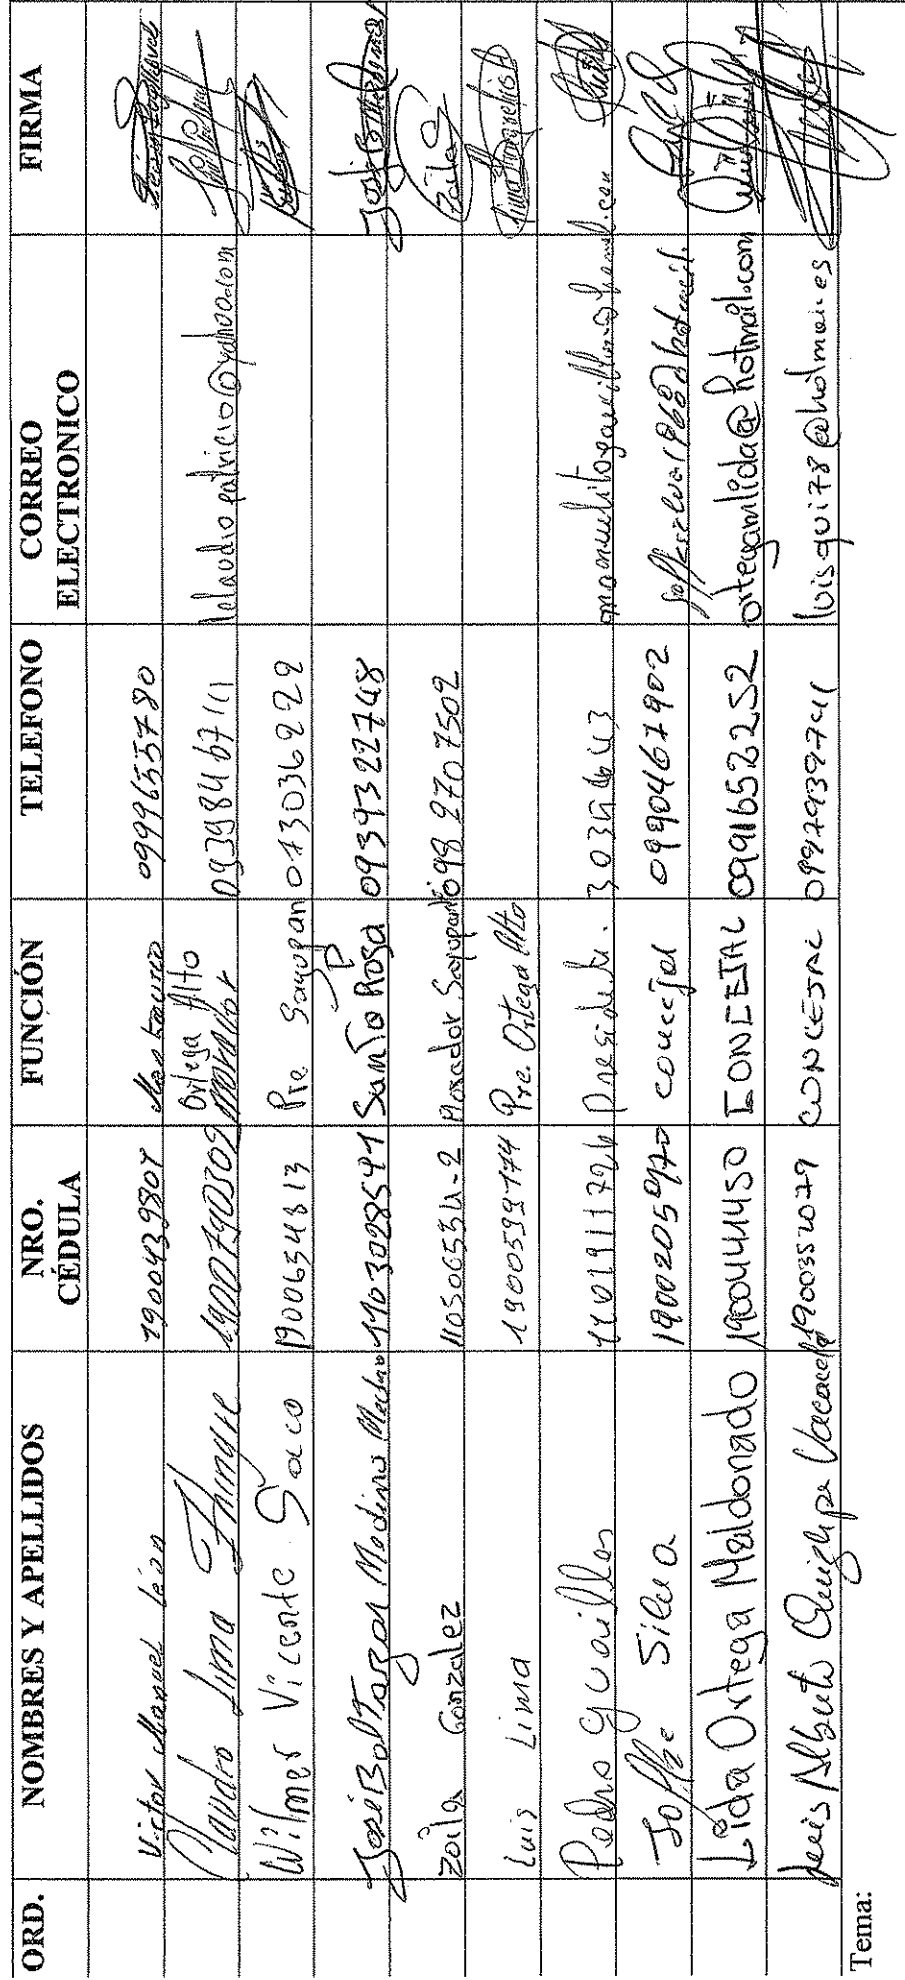 ORD. NOMBRES Y APELLIDOS NRO. CÉDULA FUNCIÓN TELEFONO CORREO ELECTRONICO FIRMA
Victor Manuel León 1900429804 0999655780
Claudio Lima 1900790309 Ortega Alto Morador 0939846711 claudiopatricio@yahoo.com
Wilmer Vicente Saca 1900634813 Pre. Sayopan 073036229
José Baltazar Medina 1103028541 Santa Rosa 0939322748
Zoila Gonzalez 110506534-2 Morador 0982707502 Zoila G
Luis Lima 1900599174 Pre. Ortega Alto
Pedro Guaillas 1101911726 Presidente. 3034643
Joffre Silva 1900205970 concejal 0990467902
Lida Ortega Maldonado 1900441450 CONCEJAL 0991652252 ortegamlida@hotmail.com
Luis Alberto Quizhpe Vacacela 1900352079 CONCEJAL 0997939741
Tema: